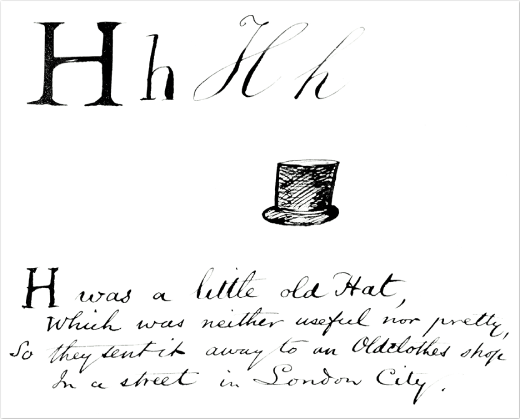 H h H h
H was a little old Hat,
Which was neither useful nor pretty,
So they sent it away to an Oldclothes shop
In a street in London City.